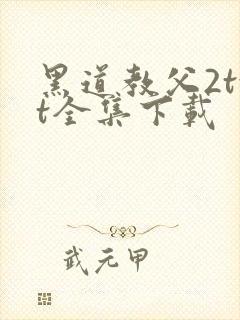 黑道教父2t
t全集下载
武元甲